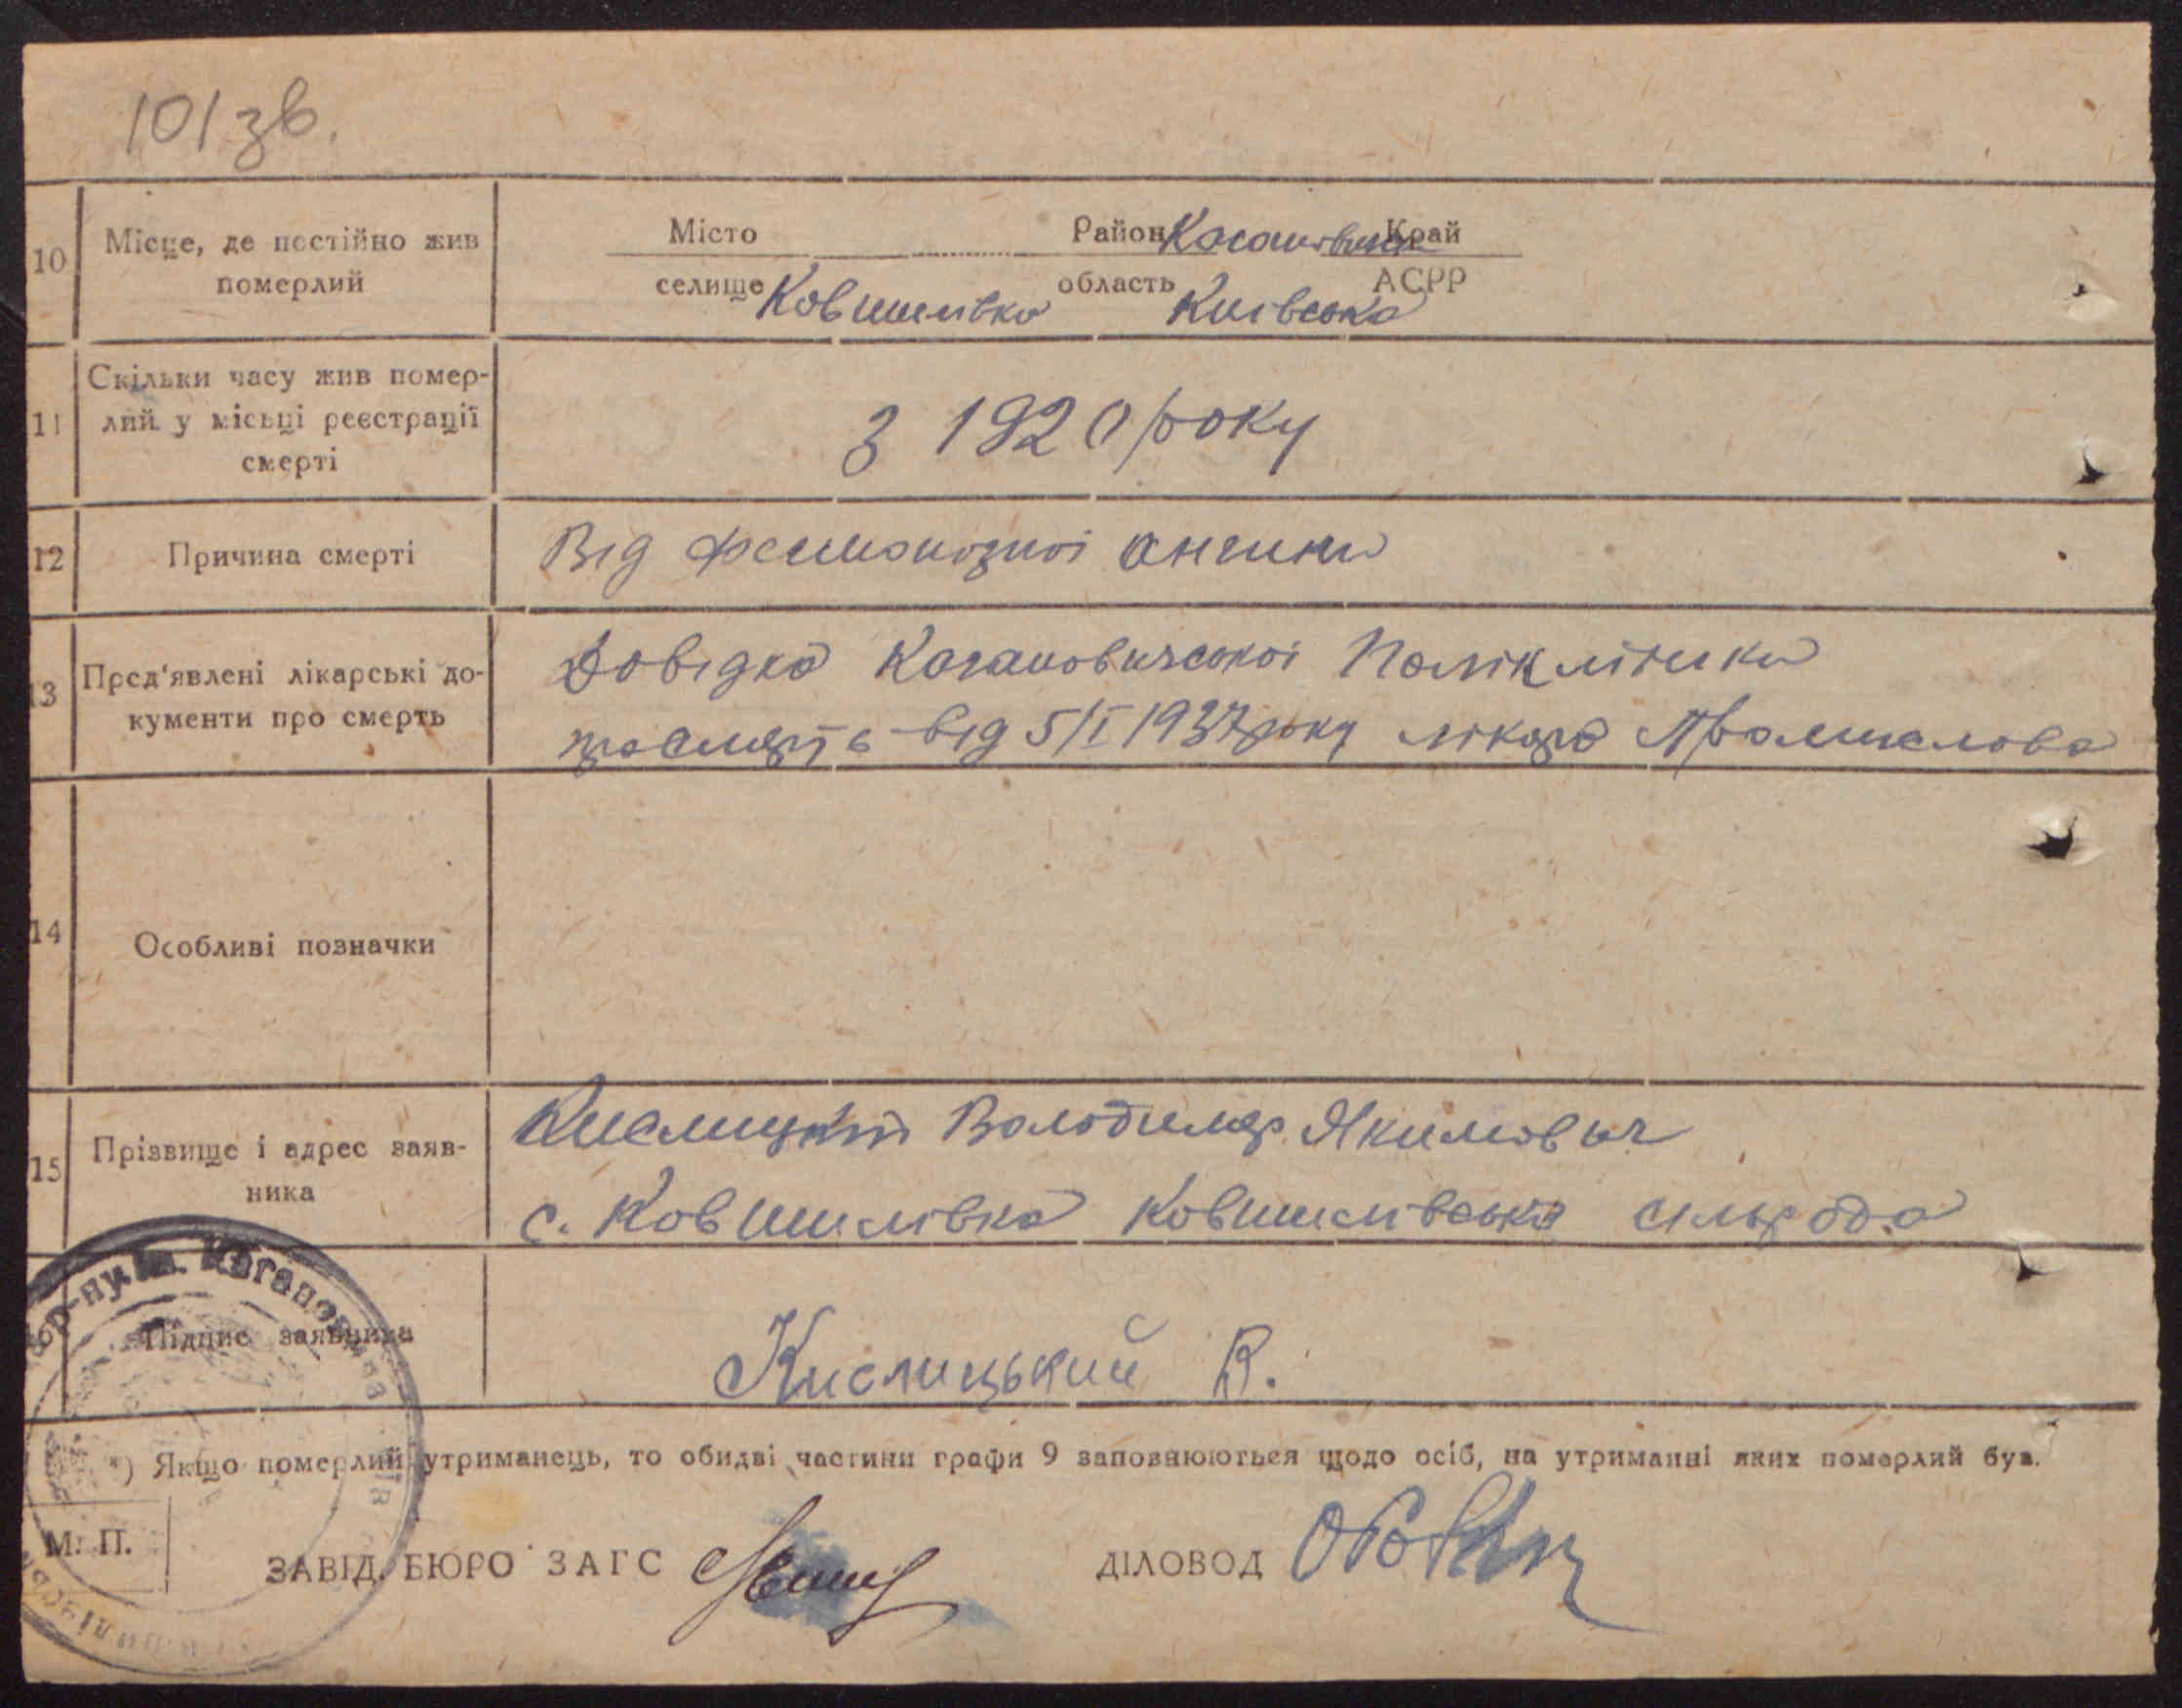 101 зв.
10 Місце, де постійно жив померлий
Місто Район Кагановича Край
селище Ковшилівка область Київська АСРР
11 Скільки часу жив помер-
лий у місьці реєстрації
смерті
З 1920 року
12 Причина смерті
Від ангини
13 Пред'явлені лікарські до-
кументи про смерть
Довідка Кагановичської Поліклініки
про смерть від 5/I 1937 року лікаря
14 Особливі позначки
15 Прізвище і адрес заяв-
ника
Кислицький Володимер Якимович
с. Ковшилівка Ковшилівська сільрада
Підпис заявника
Кислицький В.
*) Якщо померлий утриманець, то обидві частини графи 9 заповнюються щодо осіб, на утриманні яких померлий був.
М. П.
ЗАВІД. БЮРО ЗАГС
ДІЛОВОД